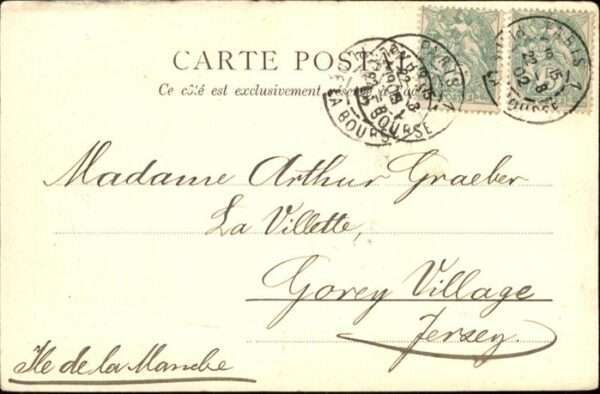 CARTE POST
Ce côté est exclusivement
PARIS
LA BOURSE
PARIS
LA BOURSE
Madame Arthur Graeber
La Villette,
Gorey Village
Jersey.
Ile de la Manche